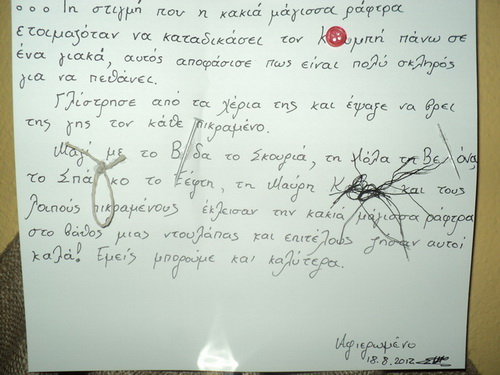 ... Τη στιγμή που η κακιά μάγισσα ράφτρα
ετοιμαζόταν να καταδικάσει τον Κουμπή πάνω σε
ένα γιακά, αυτός αποφάσισε πως είναι πολύ σκληρός
για να πεθάνει.
Γλίστρησε από τα χέρια της και έψαξε να βρει
της γης τον κάθε πικραμένο.
Μαζί με το Β δα το Σκουριά, τη Μόλα τη Βε άνα,
το Σπά κο το Ξέφτη, τη Μαύρη Κ και τους
λοιπούς πικραμένους έκλεισαν την κακιά μάγισσα ράφτρα
στο βάθος μιας ντουλάπας και επιτέλους ζήσαν αυτοί
καλά! Εμείς μπορούμε και καλύτερα.
Αφιερωμένο
18.8.2012